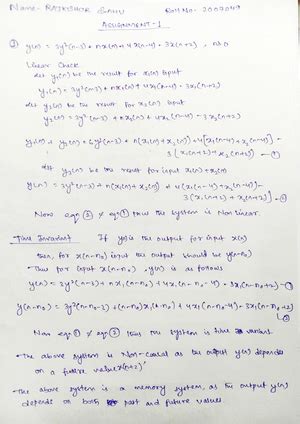 Name- RAJKISHOR SAHU Roll No:- 2002049
ASSIGNMENT-1
y(n) = 3y²(n-3) + nx(n) + 4x(n-4) - 3x(n+2) , n≥0
Linear Check
let y₁(n) be the result for x₁(n) input
y₁(n) = 3y²(n-3) + nx₁(n) + 4x₁(n-4) - 3x₁(n+2)
let y₂(n) be the result for x₂(n) input
y₂(n) = 3y²(n-3) + nx₂(n) + 4x₂(n-4) - 3x₂(n+2)
y₁(n) + y₂(n) = 6y²(n-3) + n(x₁(n) + x₂(n)) + 4[x₁(n-4) + x₂(n-4)] -
3[x₁(n+2) + x₂(n+2)] - ①
let y₃(n) be the result for input x₁(n) + x₂(n)
y(n) = 3y²(n-3) + n(x₁(n) + x₂(n)) + 4(x₁(n-4) + x₂(n-4)) -
3(x₁(n+2) + x₂(n+2)) - ②
Now eqn ② ≠ eqn ① thus the system is Non linear.
Time Invariant If y(n) is the output for input x(n)
then, for x(n-n₀) input the output should be y(n-n₀)
- Thus for input x(n-n₀) , y(n) is as follows
y(n) = 3y²(n-3) + n x₁(n-n₀) + 4x₁(n-n₀-4) - 3x₁(n-n₀+2) - ①
y(n-n₀) = 3y²(n-n₀-3) + (n-n₀)x₁(n-n₀) + 4x₁(n-n₀-4) - 3x₁(n-n₀+2)
Now eqn ① ≠ eqn ② thus the system is time variant.
- The above system is Non-Causal as the output y(n) depends
on a future value x(n+2)
- The above system is a memory system, as the output y(n)
depends on both past and future values.